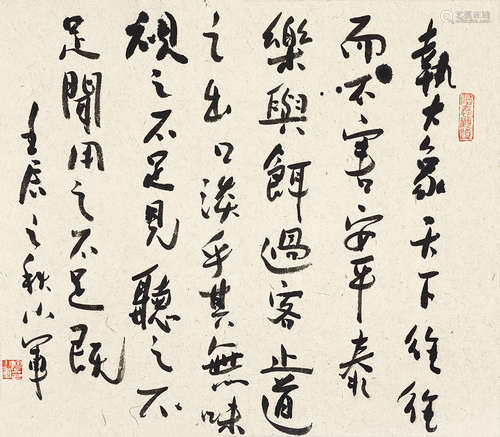 執大象天下往往
而不害安平泰
樂與餌過客止道
之出口淡乎其無味
視之不足見聽之不
足聞用之不足既
壬辰之秋小軍